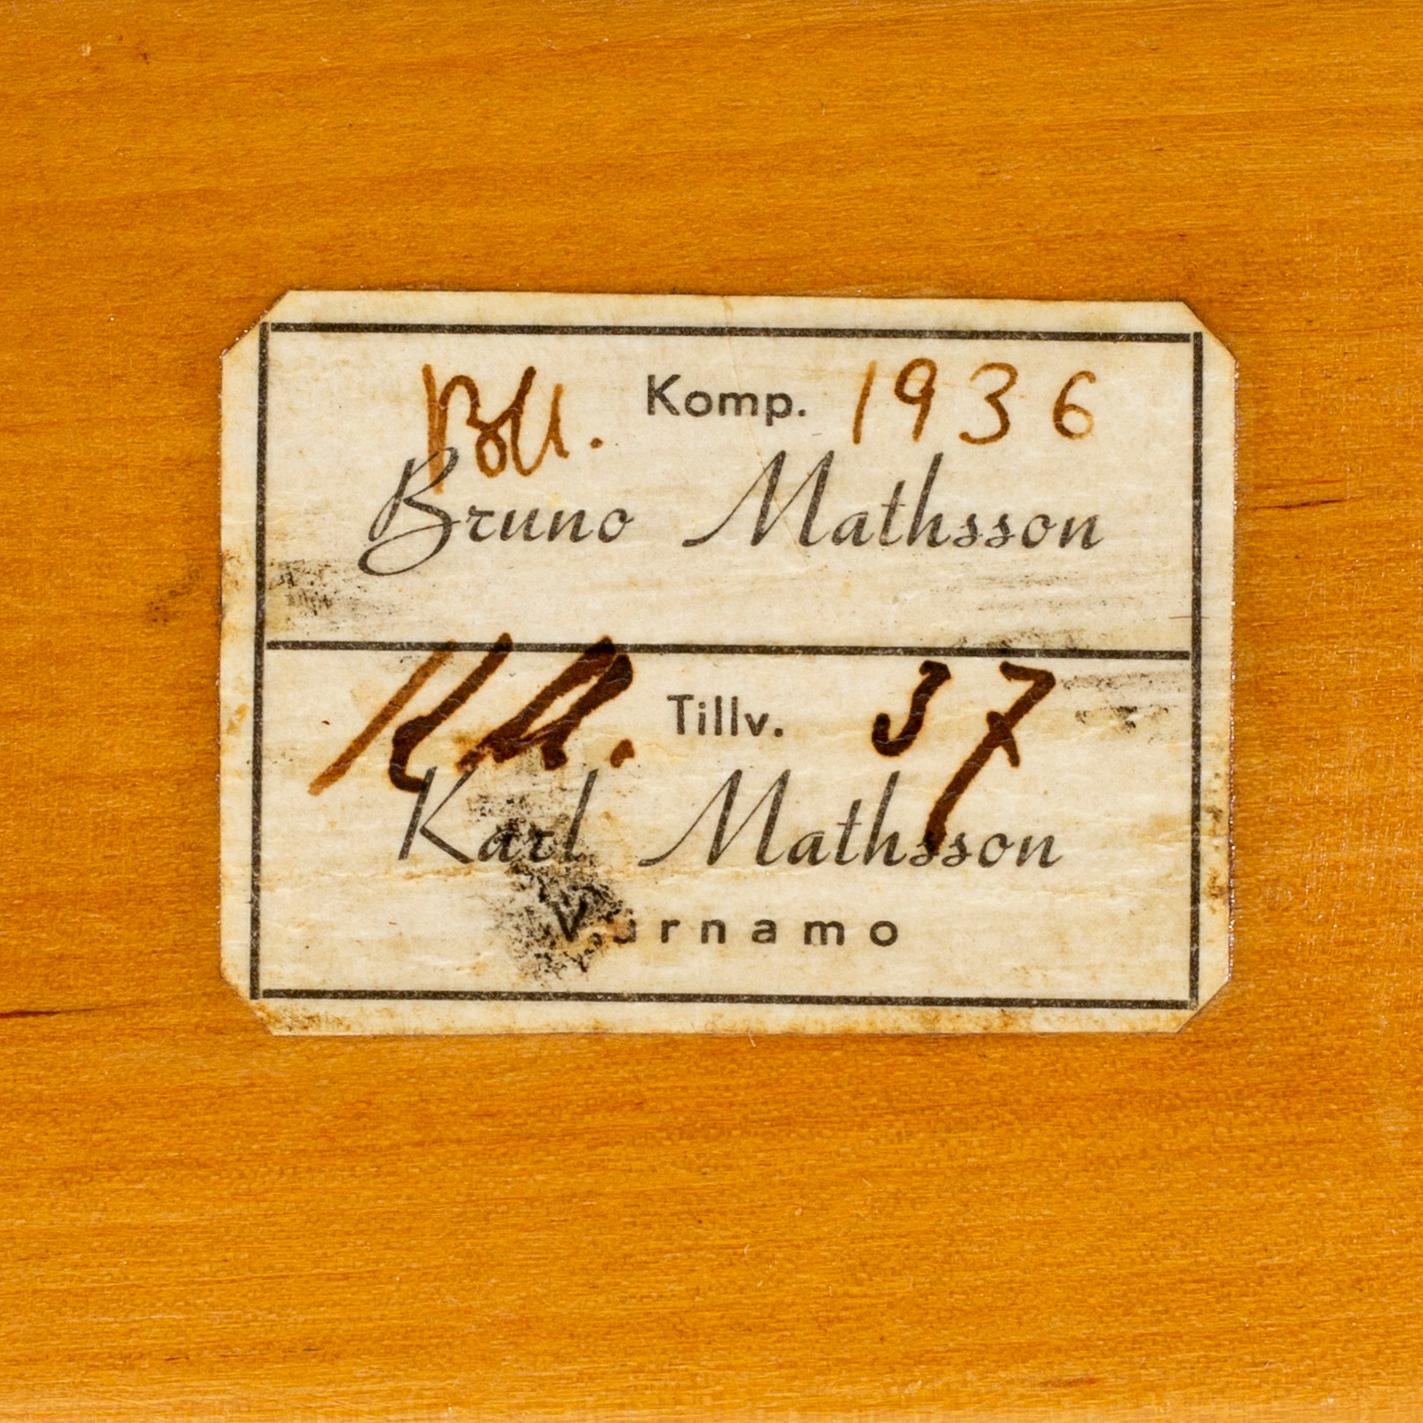 BM. Komp. 1936
Bruno Mathsson
KM. Tillv. 37
Karl Mathsson
Värnamo